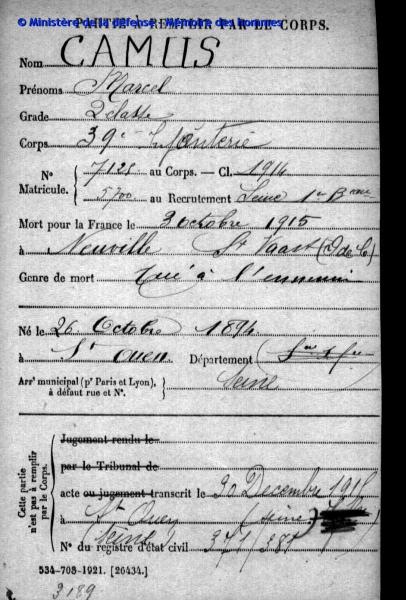 © Ministère de la défense - Mémoire des hommes
PARTIE À REMPLIR PAR LE CORPS.
Nom CAMUS
Prénoms Marcel
Grade 2e classe
Corps 39e Infanterie
N° Matricule. 7128 au Corps. — Cl. 1914
5700 au Recrutement Seine 1er Beau
Mort pour la France le 3 octobre 1915
à Neuville St Vaast (P de C)
Genre de mort Tué à l'ennemi
Né le 26 Octobre 1894
à St Ouen Département
Arrt municipal (pr Paris et Lyon), à défaut rue et N°. Seine
Cette partie n'est pas à remplir par le Corps.
Jugement rendu le
par le Tribunal de
acte ou jugement transcrit le 30 Decembre 1915
à St Ouen (Seine)
Seine
N° du registre d'état civil 371/381
534-708-1921. [26434.]
3189